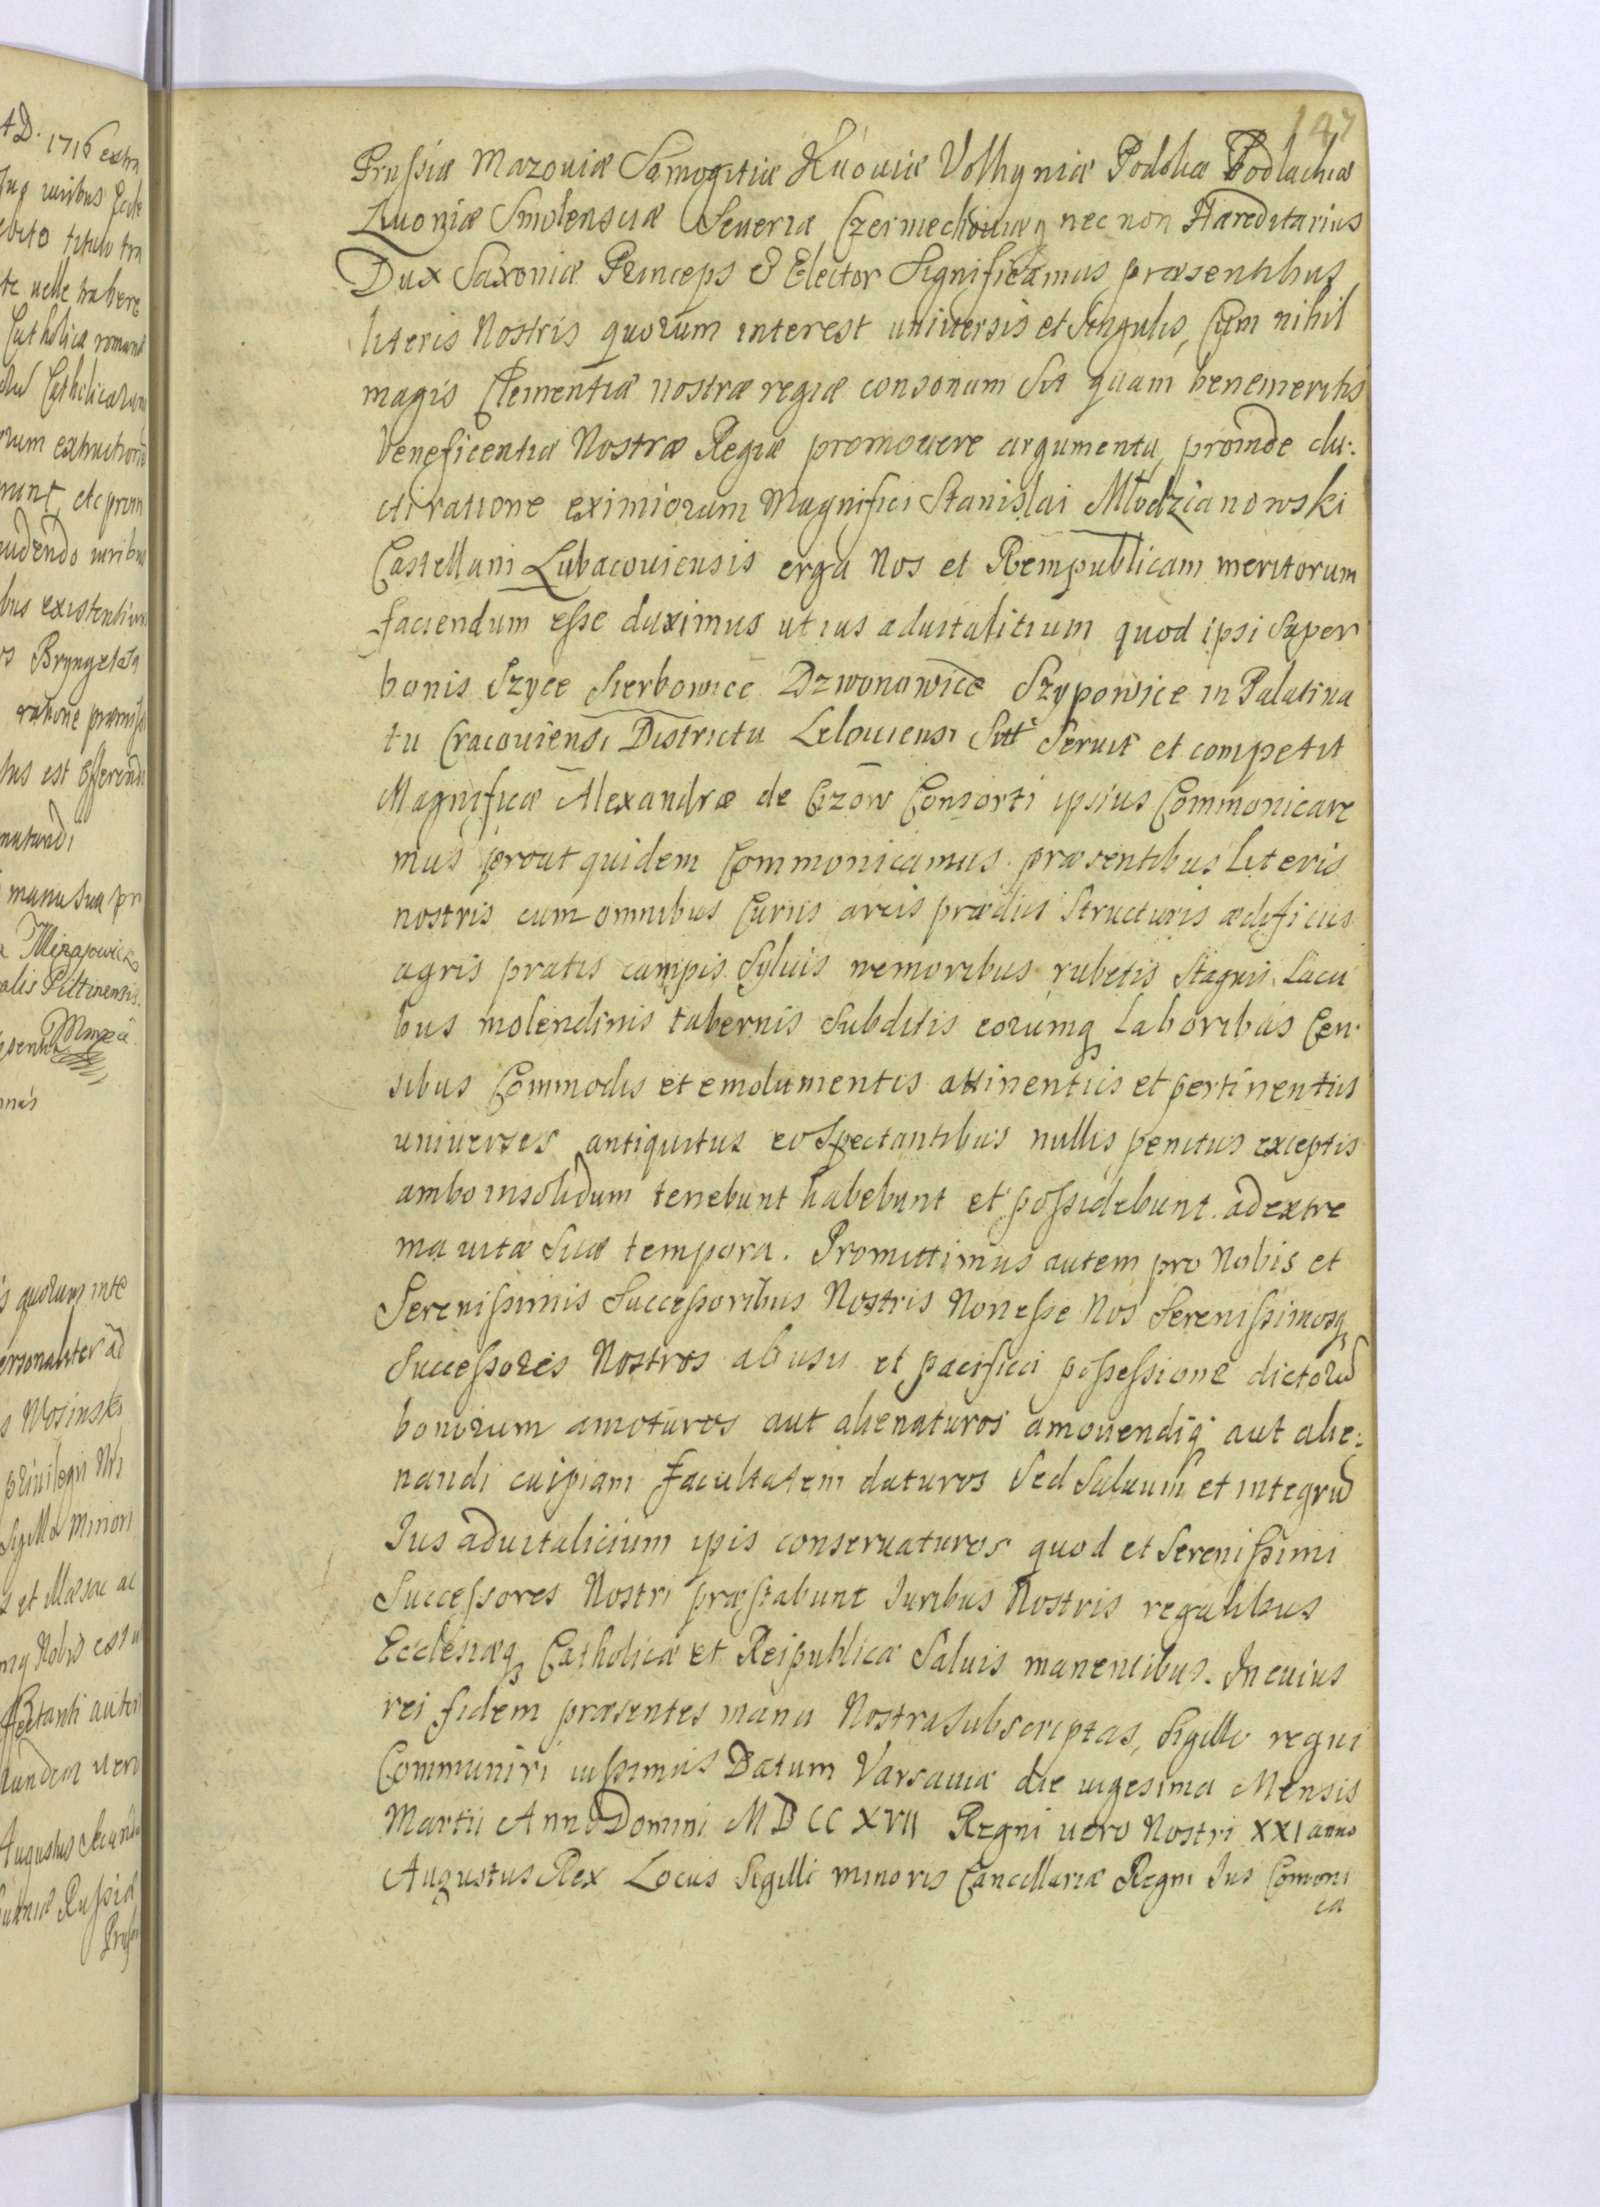 147
Prussiæ Mazouiæ Samogitiæ Kijouiæ Volhyniæ Podoliæ Podlachiæ
Liuoniæ Smolensciæ Seueriæ Czerniechouiæq nec non Hæreditarius
Dux Saxoniæ Princeps & Elector Significamus præsentibus
literis Nostris quorum interest uniuersis et Singulis, Cum nihil
magis Clementiæ nostræ regiæ consonum Sit quam benemeritis
beneficentiæ Nostræ Regiæ promouere argumenta, proinde du:
cti ratione eximiorum Magnifici Stanislai Młodzianowski
Castellani Lubacouiensis erga Nos et Rempublicam meritorum
faciendum esse duximus ut ius aduitalitium quod ipsi Super
bonis Szyce Sierbowice Dzwonowice Szypowice in Palatina
tu Cracouiensi Districtu Lelouiensi Sitt Seruit et competit
Magnificæ Alexandræ de Czow Consorti ipsius Commonicare
mus prout quidem Commonicamus præsentibus literis
nostris cum omnibus Curiis areis prædiis Structuris ædificiis
agris pratis campis Syluis nemoribus rubetis Stagnis Lacu
bus molendinis tabernis Subditis eorumq Laboribus Cen
sibus Commodis et emolumentis attinentiis et pertinentiis
uniuersis antiquitus eo Spectantibus nullis penitus exceptis
ambo insolidum tenebunt habebunt et possidebunt ad extre
ma uitæ Suæ tempora. Promittimus autem pro Nobis et
Serenissimis Successoribus Nostris Non esse Nos Serenissimosq
Successores Nostros ab usu et pacifica possessione dictorū
bonorum amoturos aut alienaturos amouendiq aut alie:
nandi cuipiam facultatem daturos Sed Saluum et integrū
Ius aduitalicium ipsis conseruaturos quod et Serenissimi
Successores Nostri præstabunt Iuribus Nostris regalibus
Ecclesiæq Catholicæ et Reipublicæ Saluis manentibus. In cuius
rei fidem præsentes manu Nostra Subscriptas, Sigillo regni
Communiri iussimus Datum Varsauiæ die uigesima Mensis
Martii Anno Domini MDCCXVII Regni uero Nostri XXI anno
Augustus Rex Locus Sigilli minoris Cancellariæ Regni Ius Comoni
ca